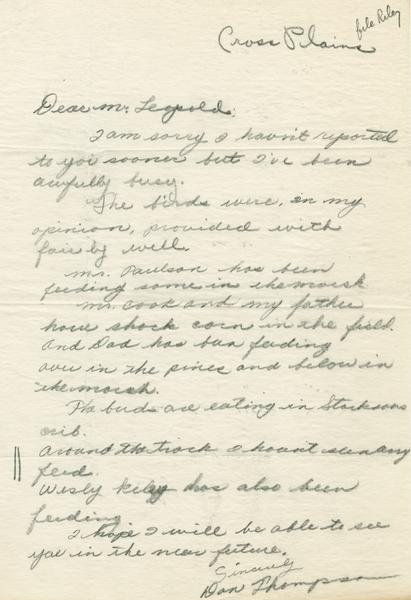 file Riley
Cross Plains
Dear Mr. Leopold;
I am sorry I havn't reported
to you sooner but I've been
awfully busy.
The birds were, in my
opinion, provided with
fairly well.
Mr. Paulson has been
feeding some in the marsh
Mr. Cook and my father
have shock corn in the field.
And Dad has ben feeding
over in the pines and below in
the marsh.
The birds are eating in
crib.
Around the track I havn't seen any
feed.
Wesly Riley has also been
feeding
I hope I will be able to see
you in the near future.
Sincerely
Don Thompson